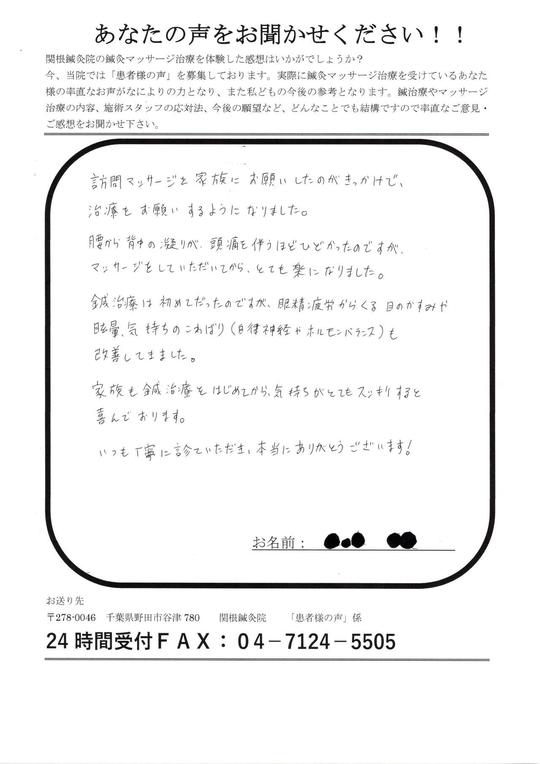 あなたの声をお聞かせください！！
関根鍼灸院の鍼灸マッサージ治療を体験した感想はいかがでしょうか？
今、当院では「患者様の声」を募集しております。実際に鍼灸マッサージ治療を受けているあなた
様の率直なお声がなによりの力となり、また私どもの今後の参考となります。鍼治療やマッサージ
治療の内容、施術スタッフの応対法、今後の願望など、どんなことでも結構ですので率直なご意見・
ご感想をお聞かせ下さい。
訪問マッサージを家族にお願いしたのがきっかけで、
治療をお願いするようになりました。
腰から背中の凝りが、頭痛を伴うほどひどかったのですが、
マッサージをしていただいてから、とても楽になりました。
鍼治療は初めてだったのですが、眼精疲労からくる目のかすみや
眩暈、気持ちのこわばり(自律神経やホルモンバランス)も
改善してきました。
家族も鍼治療をはじめてから、気持ちがとてもスッキリすると
喜んでおります。
いつも丁寧に診ていただき、本当にありがとうございます!
お名前：
お送り先
〒278-0046 千葉県野田市谷津780 関根鍼灸院 「患者様の声」係
24時間受付ＦＡＸ：０４－7124－5505